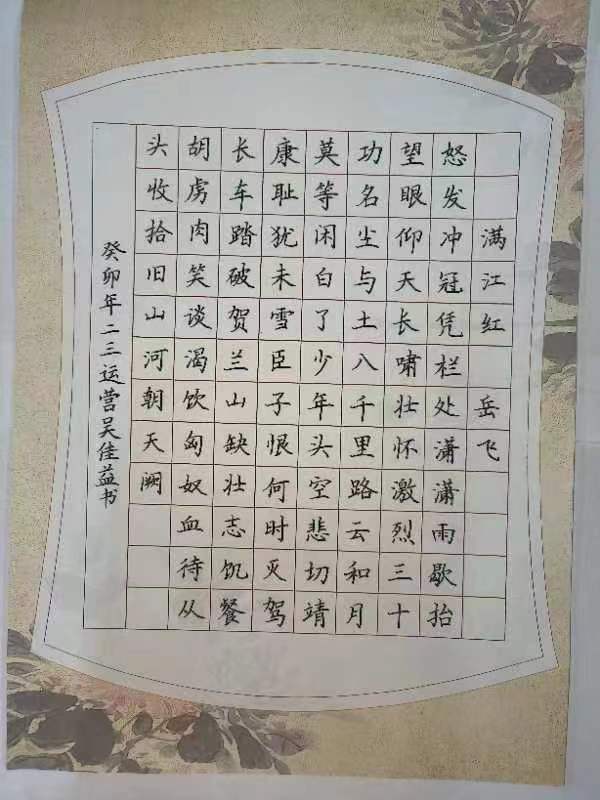 满江红 岳飞
怒发冲冠凭栏处潇潇雨歇抬
望眼仰天长啸壮怀激烈三十
功名尘与土八千里路云和月
莫等闲白了少年头空悲切靖
康耻犹未雪臣子恨何时灭驾
长车踏破贺兰山缺壮志饥餐
胡虏肉笑谈渴饮匈奴血待从
头收拾旧山河朝天阙
癸卯年二三运营吴佳益书